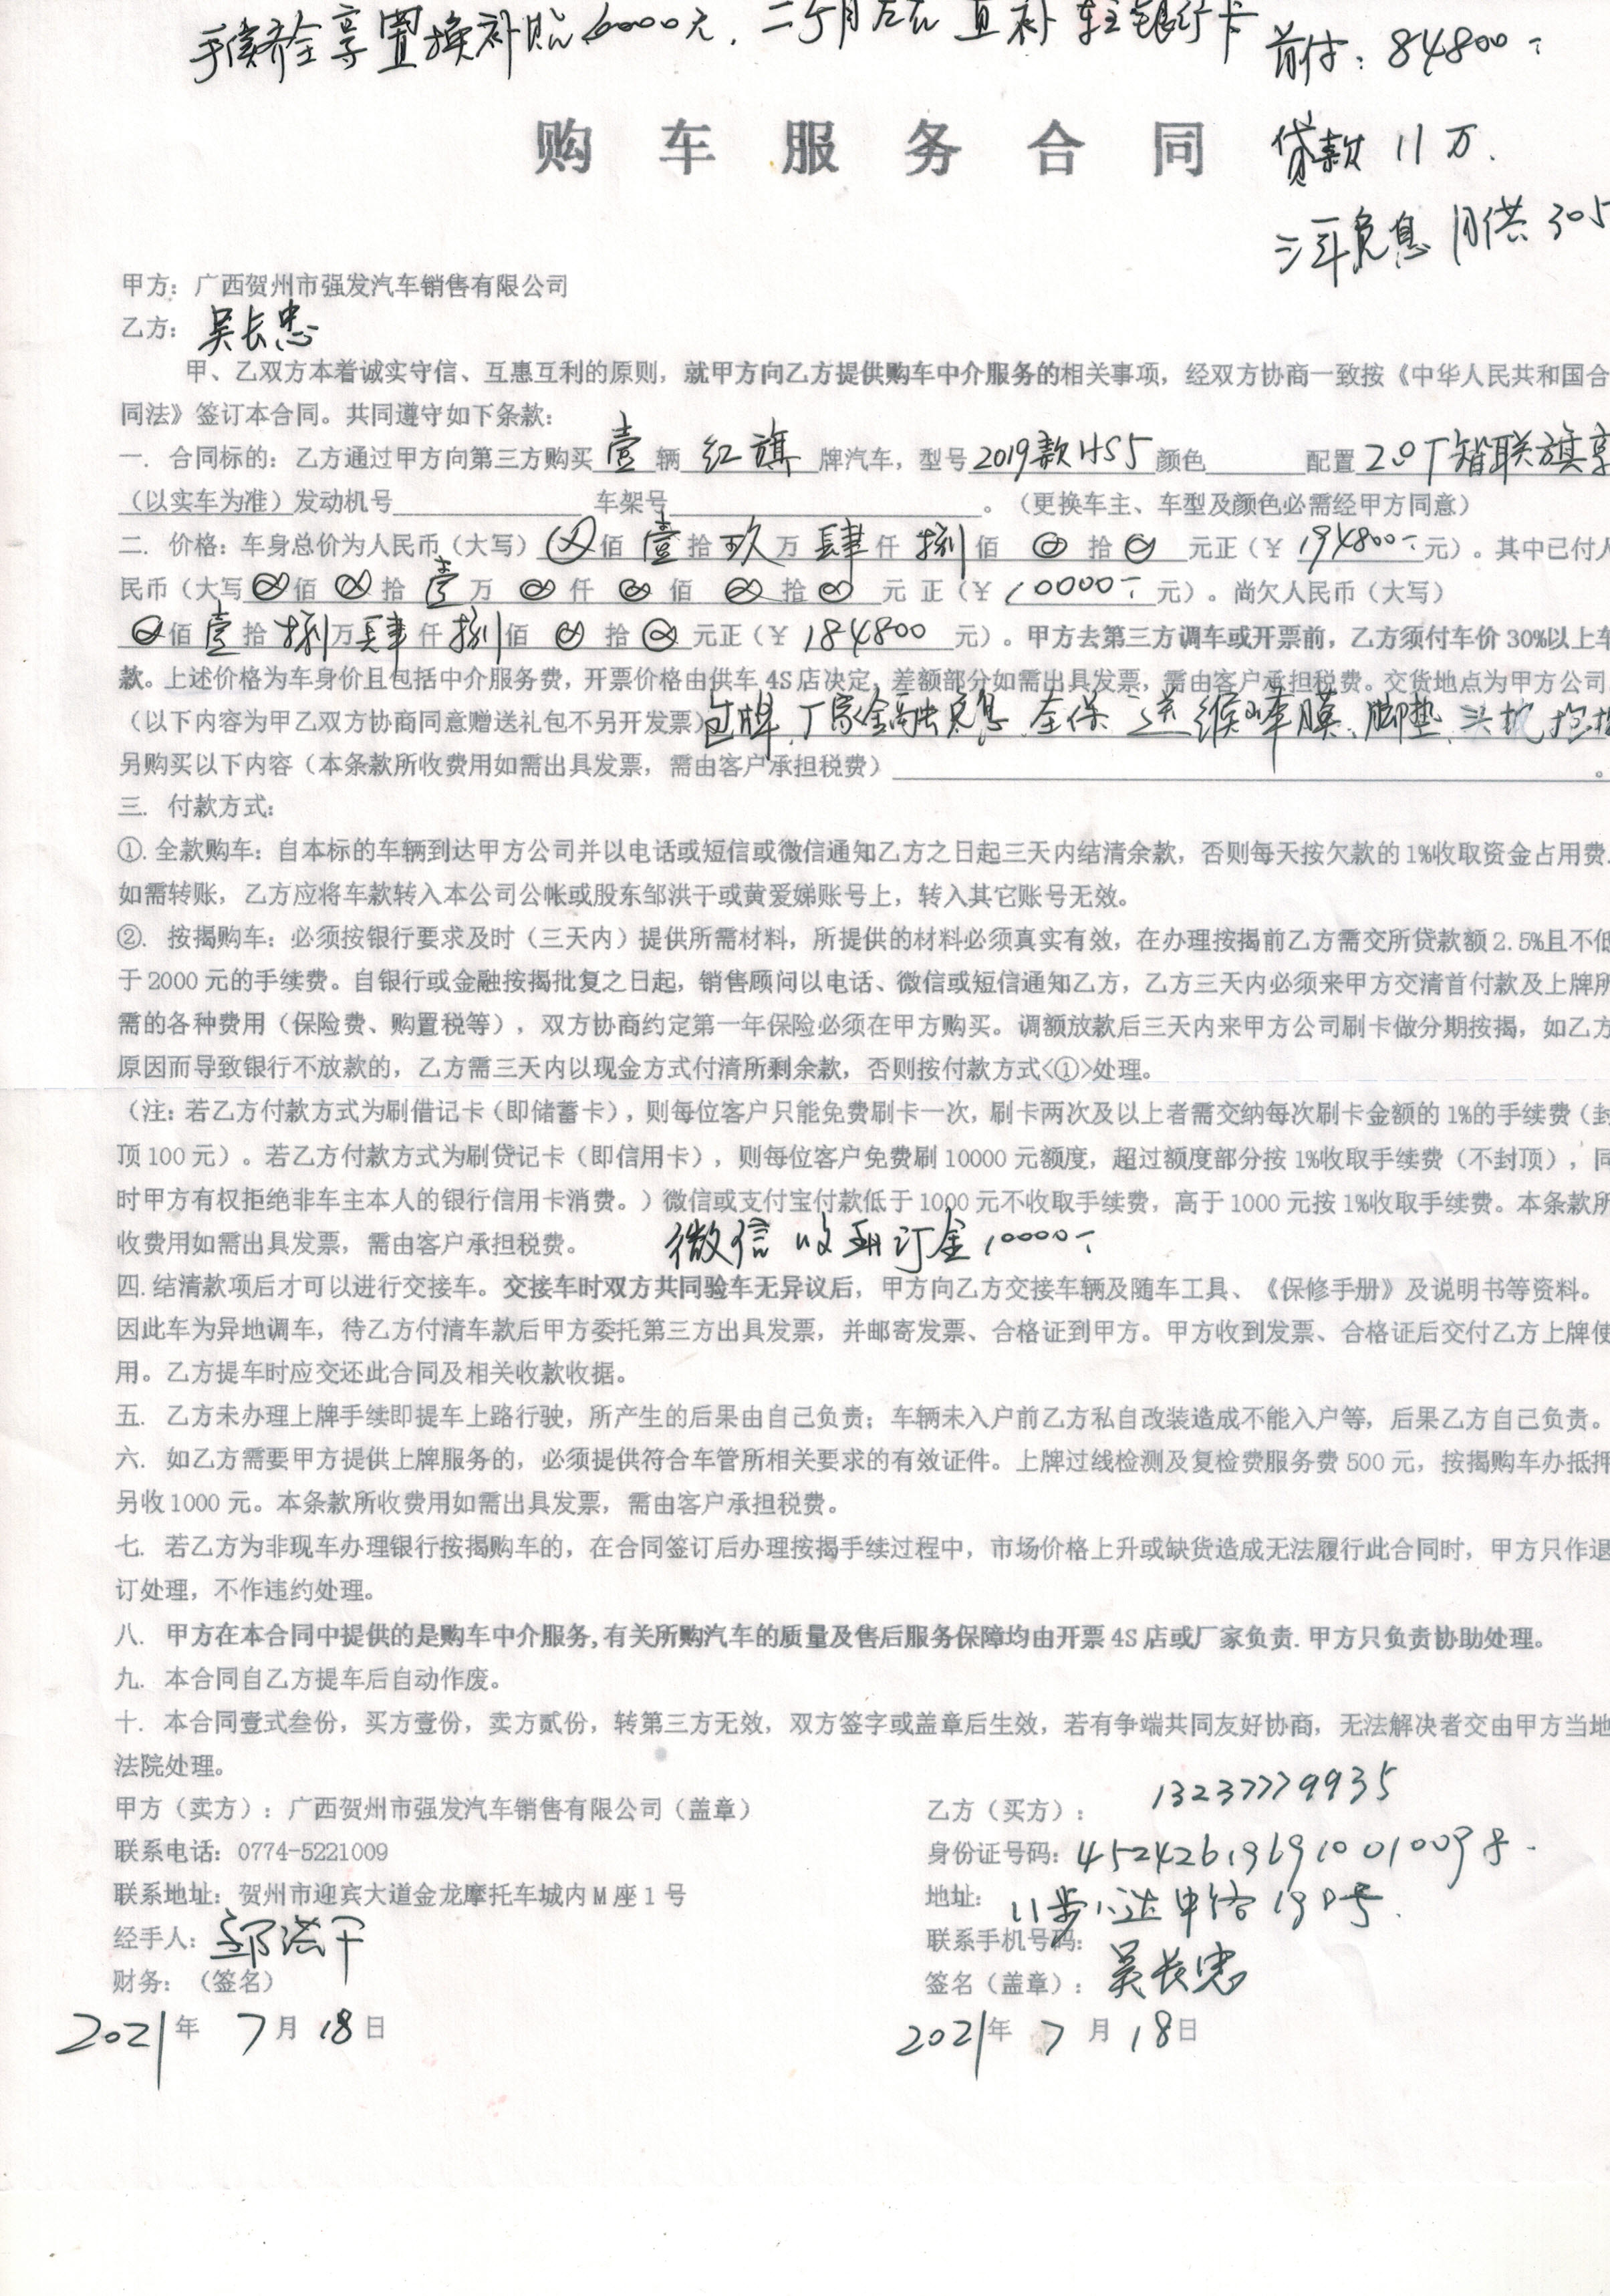 手续齐全享置换补贴6000元.二个月左右直补车主银行卡
首付:84800-
购车服务合同
贷款11万.
三年免息月供305
甲方：广西贺州市强发汽车销售有限公司
乙方：吴长忠
甲、乙双方本着诚实守信、互惠互利的原则，就甲方向乙方提供购车中介服务的相关事项，经双方协商一致按《中华人民共和国合
同法》签订本合同。共同遵守如下条款：
一. 合同标的：乙方通过甲方向第三方购买壹辆红旗牌汽车，型号2019款HS5颜色 配置2.0T智联旗享
（以实车为准）发动机号 车架号 。（更换车主、车型及颜色必需经甲方同意）
二. 价格：车身总价为人民币（大写）⊗佰壹拾玖万肆仟捌佰⊗拾⊗元正（￥194800-元）。其中已付人
民币（大写⊗佰⊗拾壹万⊗仟⊗佰⊗拾⊗元正（￥10000-元）。尚欠人民币（大写）
⊗佰壹拾捌万肆仟捌佰⊗拾⊗元正（￥184800元）。甲方去第三方调车或开票前，乙方须付车价30%以上车
款。上述价格为车身价且包括中介服务费，开票价格由供车4S店决定，差额部分如需出具发票，需由客户承担税费。交货地点为甲方公司
（以下内容为甲乙双方协商同意赠送礼包不另开发票）包牌.厂家金融免息.全保 送维峰膜、脚垫.头枕
另购买以下内容（本条款所收费用如需出具发票，需由客户承担税费） 。
三. 付款方式：
①.全款购车：自本标的车辆到达甲方公司并以电话或短信或微信通知乙方之日起三天内结清余款，否则每天按欠款的1%收取资金占用费.
如需转账，乙方应将车款转入本公司公帐或股东邹洪干或黄爱娣账号上，转入其它账号无效。
②. 按揭购车：必须按银行要求及时（三天内）提供所需材料，所提供的材料必须真实有效，在办理按揭前乙方需交所贷款额2.5%且不低
于2000元的手续费。自银行或金融按揭批复之日起，销售顾问以电话、微信或短信通知乙方，乙方三天内必须来甲方交清首付款及上牌所
需的各种费用（保险费、购置税等），双方协商约定第一年保险必须在甲方购买。调额放款后三天内来甲方公司刷卡做分期按揭，如乙方
原因而导致银行不放款的，乙方需三天内以现金方式付清所剩余款，否则按付款方式<①>处理。
（注：若乙方付款方式为刷借记卡（即储蓄卡），则每位客户只能免费刷卡一次，刷卡两次及以上者需交纳每次刷卡金额的1%的手续费（封
顶100元）。若乙方付款方式为刷贷记卡（即信用卡），则每位客户免费刷10000元额度，超过额度部分按1%收取手续费（不封顶），同
时甲方有权拒绝非车主本人的银行信用卡消费。）微信或支付宝付款低于1000元不收取手续费，高于1000元按1%收取手续费。本条款所
收费用如需出具发票，需由客户承担税费。 微信收到订金10000-
四.结清款项后才可以进行交接车。交接车时双方共同验车无异议后，甲方向乙方交接车辆及随车工具、《保修手册》及说明书等资料。
因此车为异地调车，待乙方付清车款后甲方委托第三方出具发票，并邮寄发票、合格证到甲方。甲方收到发票、合格证后交付乙方上牌使
用。乙方提车时应交还此合同及相关收款收据。
五. 乙方未办理上牌手续即提车上路行驶，所产生的后果由自己负责；车辆未入户前乙方私自改装造成不能入户等，后果乙方自己负责。
六. 如乙方需要甲方提供上牌服务的，必须提供符合车管所相关要求的有效证件。上牌过线检测及复检费服务费500元，按揭购车办抵押
另收1000元。本条款所收费用如需出具发票，需由客户承担税费。
七. 若乙方为非现车办理银行按揭购车的，在合同签订后办理按揭手续过程中，市场价格上升或缺货造成无法履行此合同时，甲方只作退
订处理，不作违约处理。
八. 甲方在本合同中提供的是购车中介服务,有关所购汽车的质量及售后服务保障均由开票4S店或厂家负责.甲方只负责协助处理。
九. 本合同自乙方提车后自动作废。
十. 本合同壹式叁份，买方壹份，卖方贰份，转第三方无效，双方签字或盖章后生效，若有争端共同友好协商，无法解决者交由甲方当地
法院处理。
甲方（卖方）：广西贺州市强发汽车销售有限公司（盖章）
乙方（买方）： 13237779935
联系电话：0774-5221009
身份证号码：45242619691001009
联系地址：贺州市迎宾大道金龙摩托车城内M座1号
地址： 八步八达中路190号.
经手人：邹洪干
联系手机号码：
财务：（签名）
签名（盖章）：吴长忠
2021年7月18日
2021年7月18日